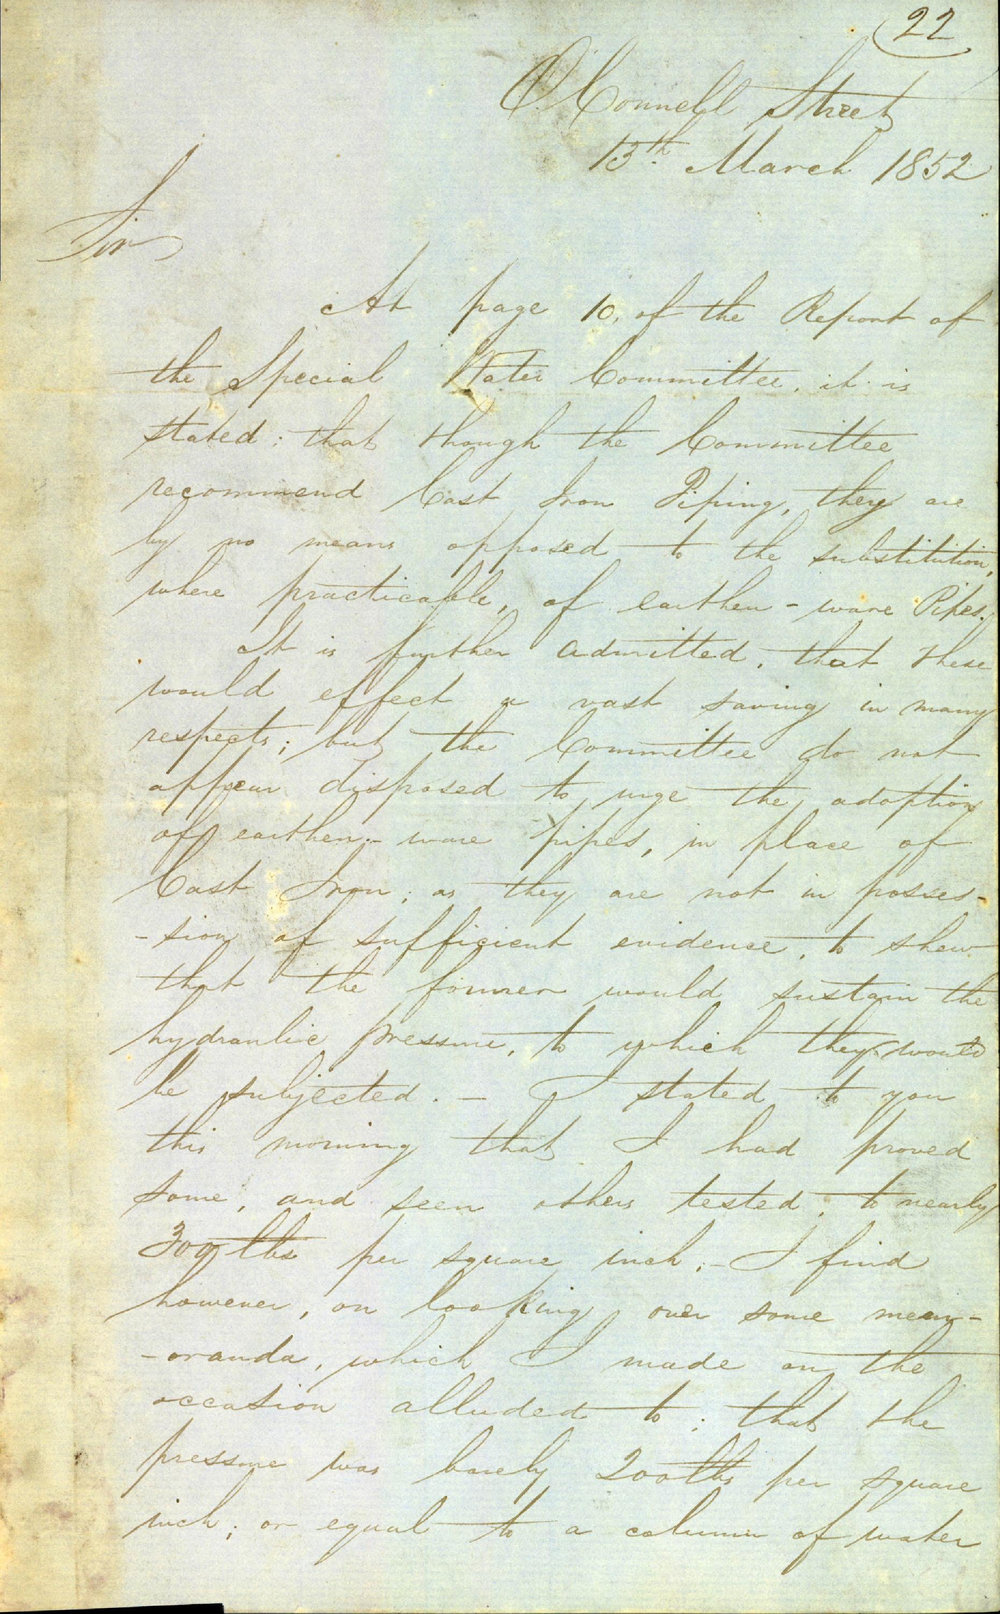 22
O'Connell Street
13th March 1852
Sir
At page 10, of the Report of
the Special Water Committee, it is
stated; that though the Committee
recommend Cast Iron Piping, they are
by no means opposed to the substitution,
where practicable, of earthen-ware Pipes.
It is further admitted, that these
would effect a vast saving in many
respects; but the Committee do not
appear disposed to urge the adoption
of earthen-ware pipes, in place of
Cast Iron; as they are not in posses-
-sion of sufficient evidence, to shew
that the former would sustain the
hydraulic pressure, to which they would
be subjected. — I stated to you
this morning that I had proved
some, and seen others tested, to nearly
300 lbs per square inch; - I find
however, on looking over some mem-
-oranda, which I made on the
occasion alluded to; that the
pressure was barely 200 lbs per square
inch; or equal to a column of water